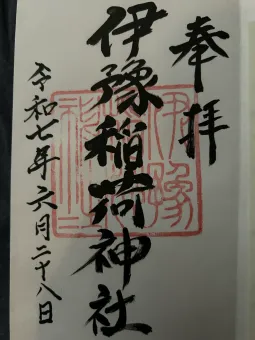 奉拝
伊豫稲荷神社
令和七年六月二十八日